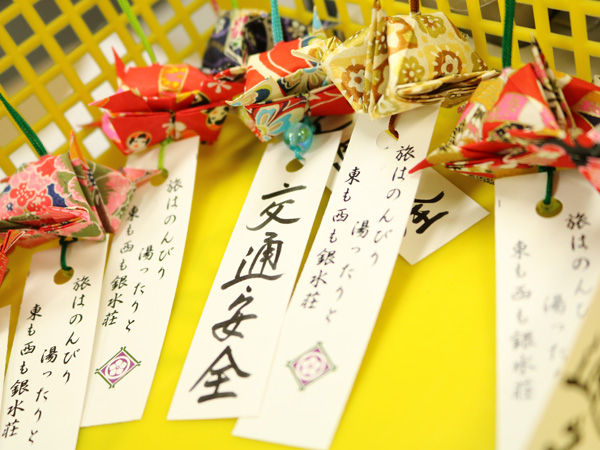 旅はのんびり
湯ったりと
東も西も銀水荘
旅はのんびり
湯ったりと
東も西も銀水荘
交通安全
旅はのんびり
湯ったりと
東も西も銀水荘
全
旅はのんびり
湯ったりと
東も西も銀水荘